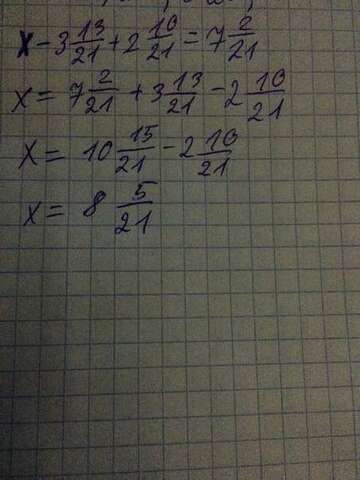 x - 3 13/21 + 2 10/21 = 7 2/21
x = 7 2/21 + 3 13/21 - 2 10/21
x = 10 15/21 - 2 10/21
x = 8 5/21